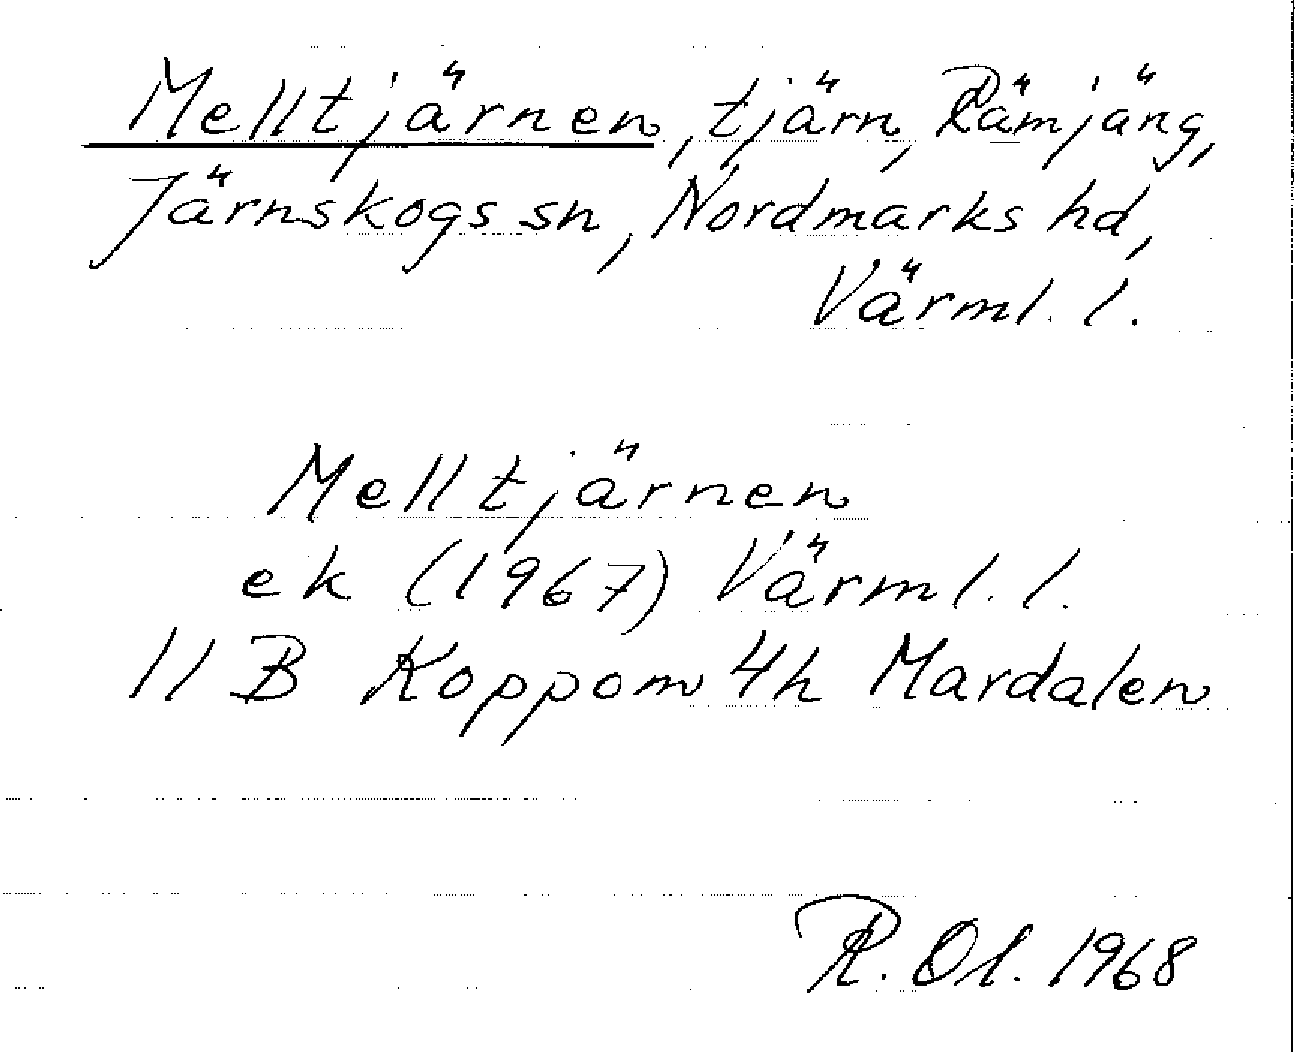 Melltjärnen, tjärn, Rämjäng,
Järnskogs sn, Nordmarks hd,
Värml. l.
Melltjärnen
ek (1967) Värml. l.
11 B Koppom 4h Mardalen
R. Ol. 1968